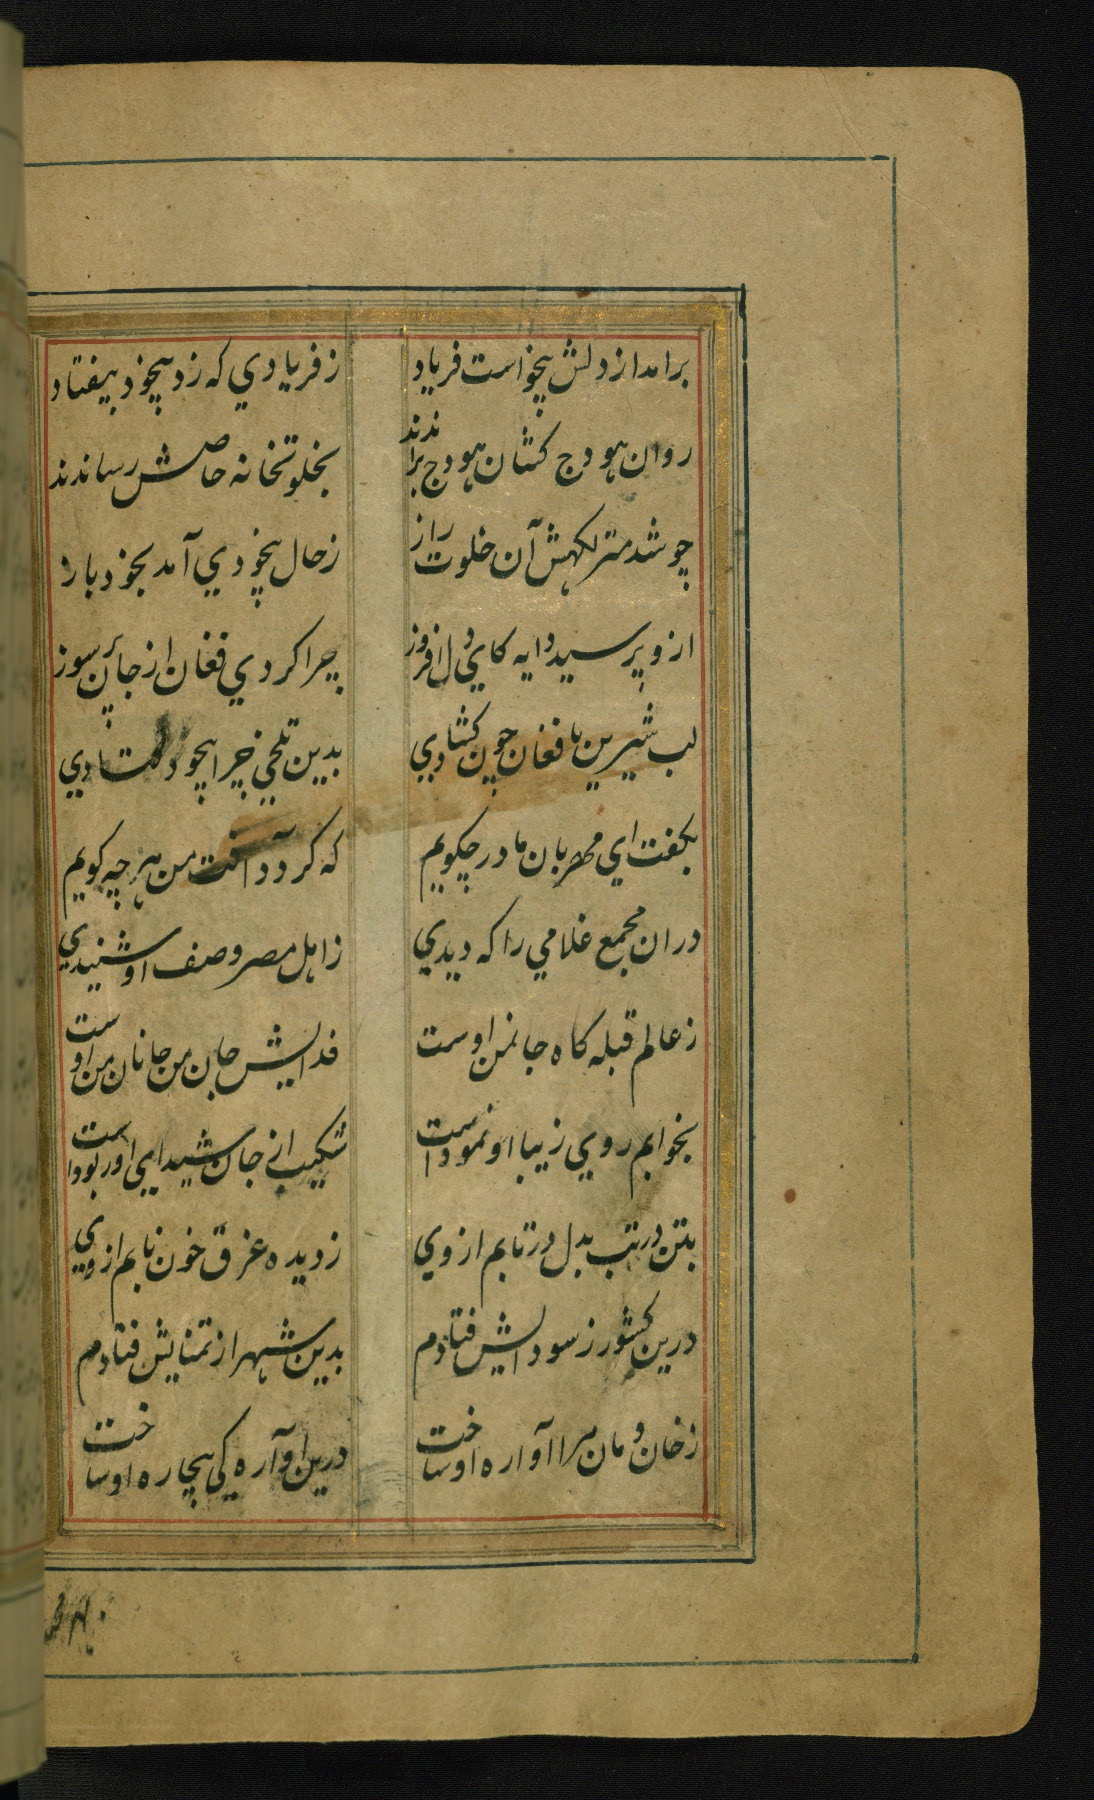 برامد از دلش بیخواست فریاد ز فریادي که زد بیخود بیفتاد
روان هودج کشان هودج براندند بخلوتخانه خاصش رساندند
چو شد منزلکهش آن خلوت راز ز حال بیخودي آمد بخود باز
ازو پرسید دایه کاي دل افروز چرا کردي فغان از جان پرسوز
لب شیرین با فغان چون کشادي بدین تلخي چرا بیخود فتادي
بکفت اي مهربان مادر چکویم که کردد آفت من هرچه کویم
دران مجمع غلامي را که دیدي ز اهل مصر وصف او شنیدي
ز عالم قبله کاه جانمن اوست فدایش جان من جانان من اوست
بخوابم روي زیبا او نموداست شکیب از جان شیدایي او ربوداست
بتن در تب بدل در تابم از وي ز دیده غرق خون نابم از وي
درین کشور ز سودایش فتادم بدین شهر از تمنایش فتادم
ز خان و مان مرا آواره او ساخت درین آوارکي بیچاره او ساخت